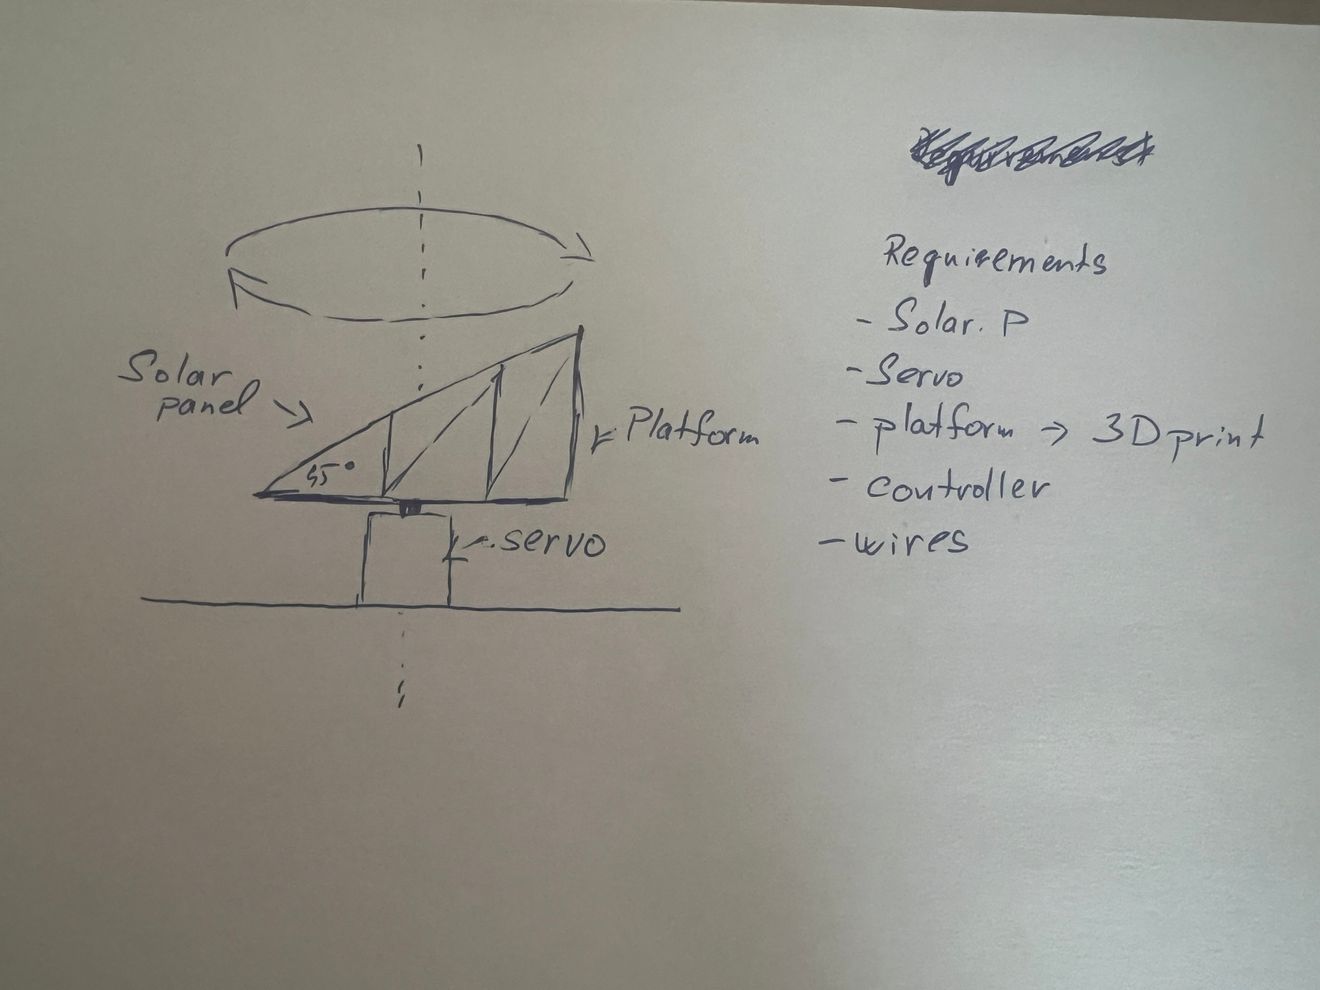 Requirements
Solar
panel
45°
Platform
servo
Requirements
- Solar. P
- Servo
- platform → 3D print
- controller
- wires